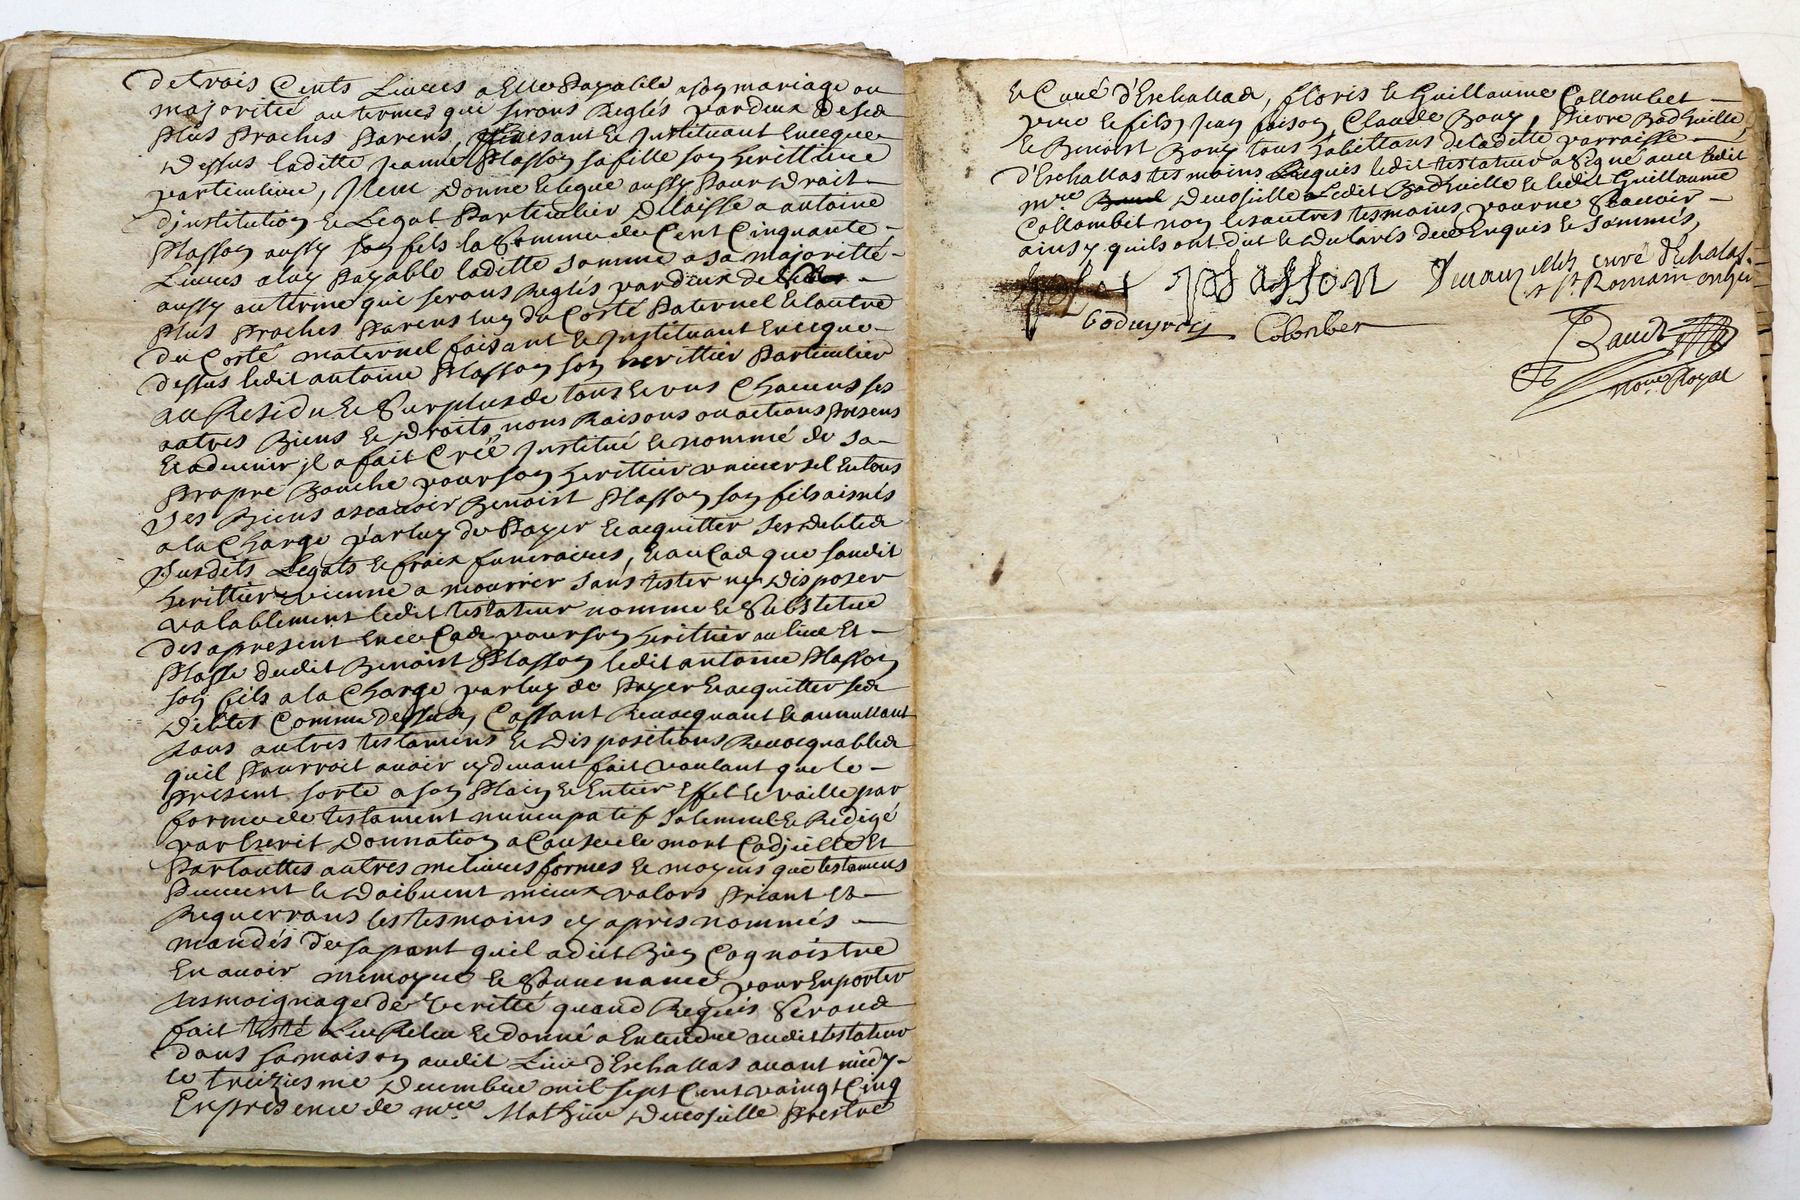 de trois Cents Livres a Elle Payable a son mariage ou
majoritté au termes qui serons Reglés par deux de ses
Plus Proches Parens, faisant et Jnstituant En ce que
Dessus laditte Jeanne Plasson sa fille son herittiere
particuliere, Jtem donne et legue aussy Pour Droit
d'jnstitution et Legat Particulier delaisse a antoine
Plasson aussy son fils la Somme de Cent Cinquante
Livres a luy Payable laditte somme a sa majoritté
aussy au terme qui serons Reglés par deux de ses
Plus Proches Parens l'un du Costé Paternel et lautre
du Costé maternel faisant et Jnstituant En ce que
dessus ledit antoine Plasson son herittier Particulier
au Residu et Surplus de tous et uns Chacuns ses
autres Biens et Droits, noms Raisons ou actions Presens
et aduenir jl a fait Créé Jnstitué et nommé de sa
Propre Bouche pour son herittier universel En tous
ses Biens ascauoir Benoist Plasson son fils aisnés
a la Charge par luy de Payer et acquitter ses debtes
susdits Legats et fraix funeraires, et au Cas que sondit
herittier vienne a mourrir sans tester ny disposer
valablement ledit testateur nomme et Substitue
des a present En ce Cas pour son herittier au lieu Et
Plasse dudit Benoist Plasson ledit antoine Plasson
son fils a la Charge par luy de Payer et acquitter ses
debtes Comme dessus, Cassant Reuocquant et annullant
tous autres testamens et dispositions Reuocquables
quil Pourroit auoir cy deuant fait voulant que le
present sorte a son Plain et Entier Effet et vaille par
forme de testament nuncupatif solemnel et Redigé
par Escrit donnation a Cause de mort Codjcille Et
Par touttes autres melieures formes et moyens que testamens
Peuuent et doibuent mieux valoir Priant Et
Requerrans les tesmoins cy apres nommés
mandés de sa part quil a dit Bien Cognoistre
En auoir memoyre et Souuenance pour En porter
tesmoignage de Veritté quand Requis Serons
fait testé Leu Releu et donné a Entendre audit testateur
dans sa maison audit Lieu d'Eschallas auant midy
le treiziesme decembre mil sept Cent vaingt Cinq
En presence de mre Mathieu Decosielle Prestre
et Curé d'Eschallas, floris et Guillaume Collombet
pere et fils, Jean faison, Claude Bony, Pierre
et Benoist Bony tous habittans de laditte parroisse
d'Eschallas tesmoins Requis ledit testateur a Signé auec ledit
mre Decosielle Ledit et ledit Guillaume
Collombet non les autres tesmoins pour ne Scauoir
ainsy quils ont dit et declarés de ce Enquis et sommés,
plasson curé d'Echalas
et st Romain en gier
Colonbet
Baudz
nore Royal